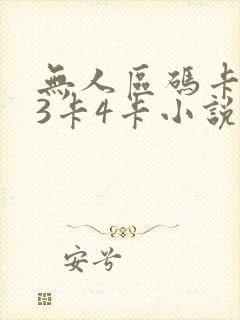 無人區碼卡
3卡4卡小說
安兮